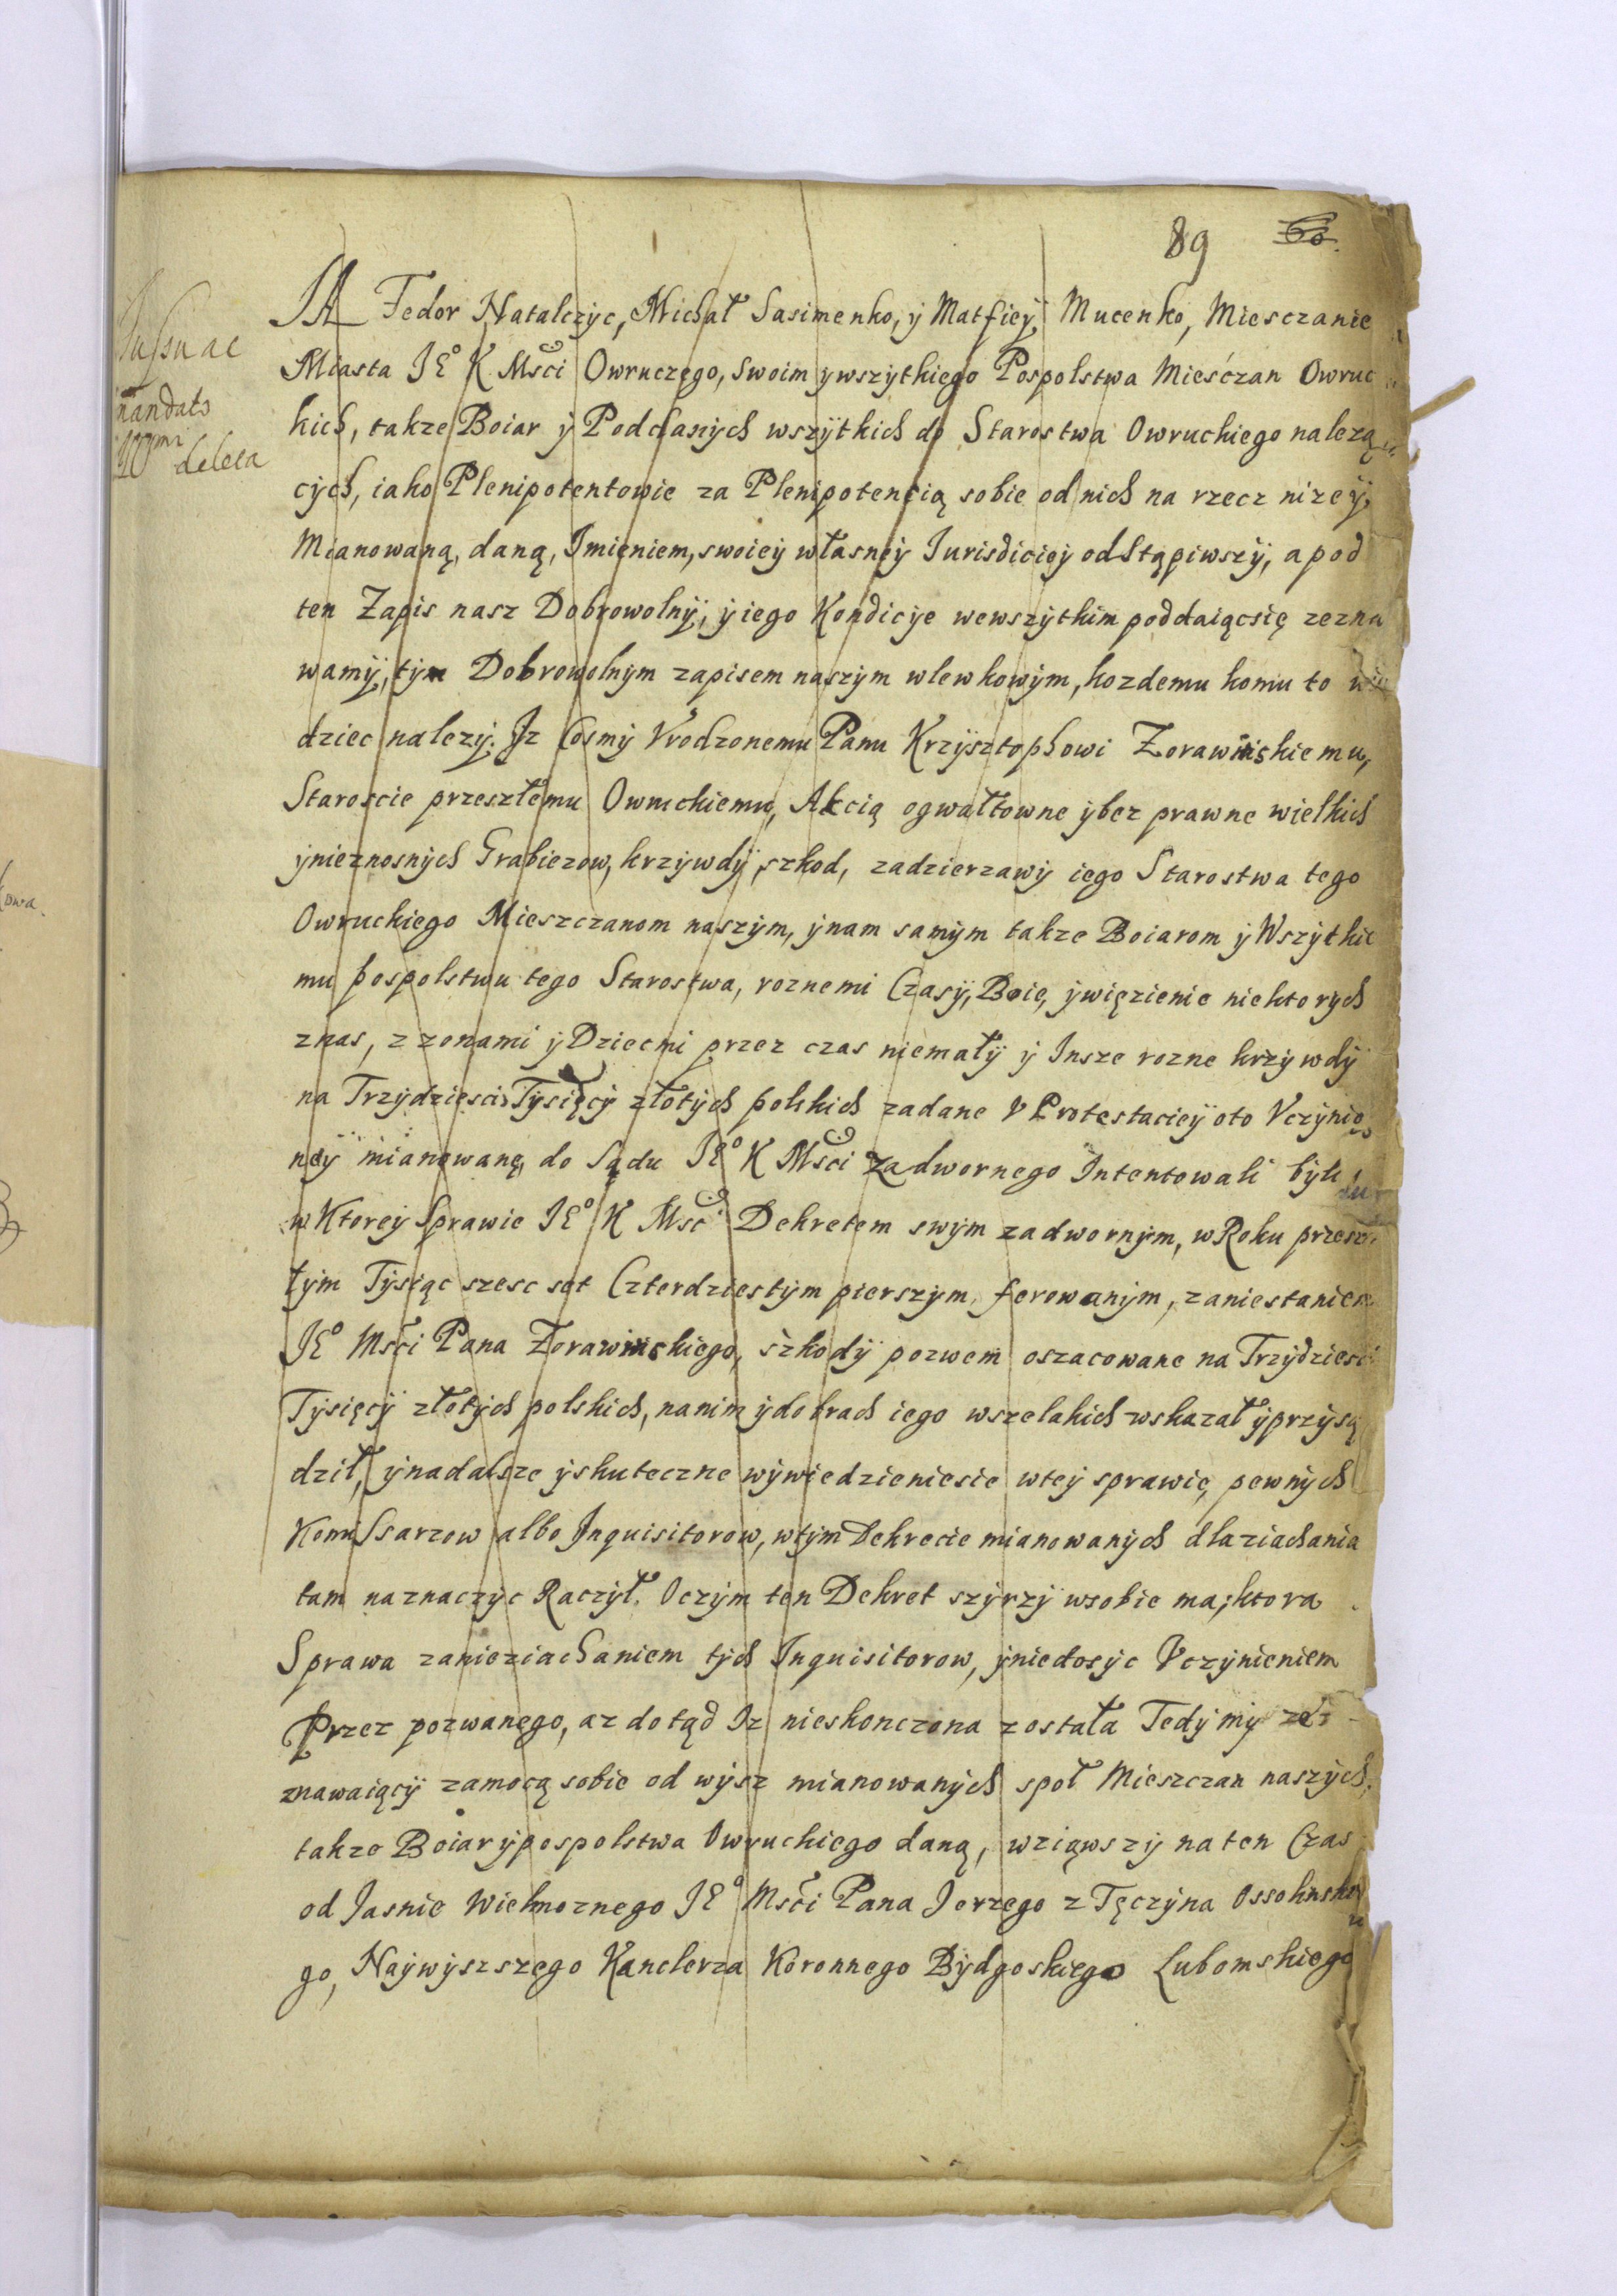 89 60.
Jussu ac
mandato
deleta
JA Fedor Natalczyc, Michał Sasimenko, ÿ Matfieÿ Mucenko, Miesczanie
Miasta JEº K Msći Owruczego, Swoim ÿ wszÿtkiego Pospolstwa Mieśćzan Owruc
kich, takze Boiar ÿ Poddanÿch wszÿtkich do Starostwa Owruckiego nalezą
cÿch, iako Plenipotentowie za Plenipotencią sobie od nich na rzecz nizeÿ
Mianowaną, daną, Imieniem, swoieÿ własneÿ Iurisdicieÿ odstąpiwszÿ, a pod
ten Zapis nasz Dobrowolnÿ, ÿ iego Kondicÿe wewszÿtkim poddaiącsię zezna
wamÿ, tÿm Dobrowolnÿm zapisem naszÿm wlewkowÿm, kozdemu komu to wie
dziec nalezÿ. Jz Cosmÿ Vrodzonemu Panu Krzÿsztophowi Zorawinskiemu,
Staroscie przeszłemu Owruckiemu, Akcią ogwałtowne ÿbez prawne wielkich
ÿnieznosnÿch Grabiezow, krzÿwdÿ, szkod, zadzierzawÿ iego Starostwa tego
Owruckiego Mieszczanom naszÿm, ÿnam samÿm takze Boiarom ÿ Wszÿtkie
mu pospolstwu tego Starostwa, roznemi Czasÿ, Boie, ÿwięzienie niektorÿch
znas, z zonami ÿ Dziecmi przez czas niemałÿ ÿ Insze rozne krzÿwdÿ
na Trzÿdziesci Tÿsięcÿ złotÿch polskich zadane V Protestacieÿ oto Vczÿnio
neÿ mianowanę, do Sądu JEº K Msći Zadwornego Intentowali bÿli
w Ktoreÿ Sprawie JEº K Msć Dekretem swÿm zadwornÿm, w Roku przesz
łÿm Tÿsiąc szesc set Czterdziestÿm pierszÿm ferowanÿm, zaniestaniem
JEº Msći Pana Zorawinskiego, szkodÿ pozwem oszacowane na Trzÿdziesci
Tÿsięcÿ złotÿch polskich, nanim ÿdobrach iego wszelakich wskazał ÿprzÿsą
dził, ÿnadalsze ÿskuteczne wÿwiedzieniesie wteÿ sprawie, pewnÿch
Komissarzow albo Inquisitorow, wtÿm Dekrecie mianowanÿch dlaziachania
tam naznaczÿc Raczÿł. Oczÿm ten Dekret szÿrzÿ wsobie ma; ktora
Sprawa zanieziachaniem tÿch Inquisitorow, ÿniedosÿc Vczÿnieniem
Przez pozwanego, az dotąd Iz nieskonczona została Tedÿ mÿ ze
znawaiącÿ zamocą sobie od wÿsz mianowanÿch społ Mieszczan naszÿch,
takze Boiar ÿpospolstwa Owruckiego daną, wziąwszÿ na ten Czas
od Jasnie Wielmoznego JEº Msći Pana Jerzego z Tęczÿna Ossolinskie
go, Naÿwÿszszego Kanclerza Koronnego Bÿdgoskiego Lubomskiego